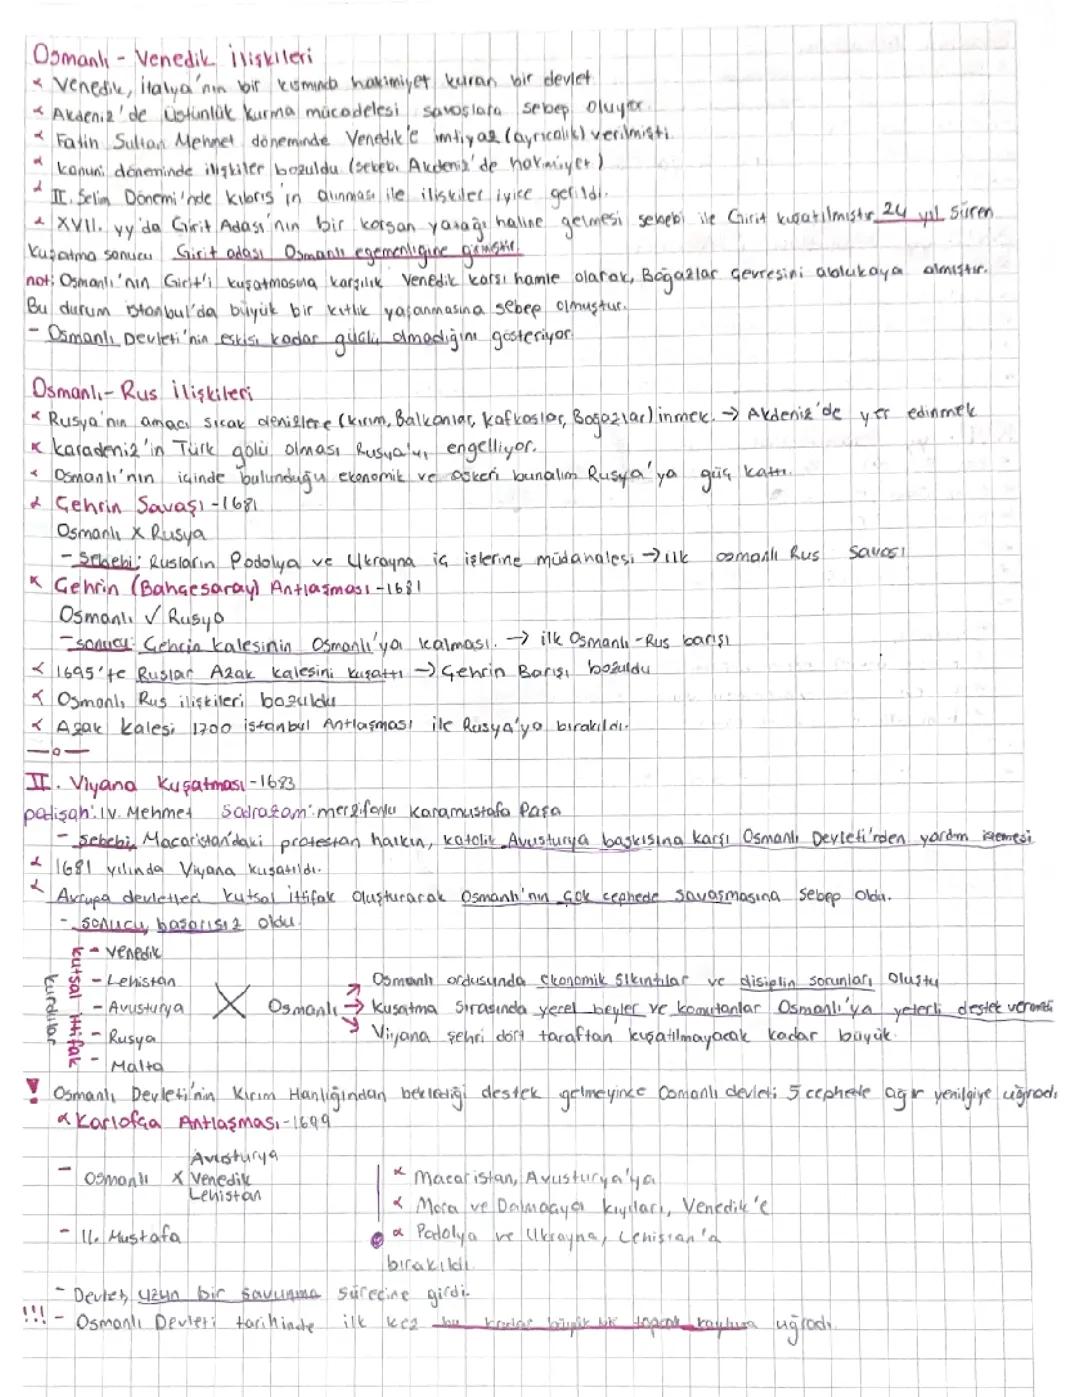 Osmanlı - Venedik İlişkileri
∝ Venedik, İtalya'nın bir kısmında hakimiyet kuran bir devlet
∝ Akdeniz'de Üstünlük kurma mücadelesi savaşlara sebep oluyor.
∝ Fatih Sultan Mehmet döneminde Venedik'e imtiyaz (ayrıcalık) verilmişti.
∝ kanuni döneminde ilişkiler bozuldu (sebebi Akdeniz'de hakimiyet)
∝ II. Selim Dönemi'nde kıbrıs'ın alınması ile ilişkiler iyice gerildi.
∝ XVII. yy'da Girit Adası'nın bir korsan yatağı haline gelmesi sebebi ile Girit kuşatılmıştır 24 yıl süren
kuşatma sonucu Girit adası Osmanlı egemenliğine girmiştir.
not: Osmanlı'nın Girit'i kuşatmasına karşılık Venedik karşı hamle olarak, Boğazlar Çevresini ablukaya almıştır.
Bu durum istanbul'da büyük bir kıtlık yaşanmasına sebep olmuştur.
- Osmanlı Devleti'nin eskisi kadar güçlü olmadığını gösteriyor.
Osmanlı - Rus İlişkileri
∝ Rusya'nın amacı sıcak denizlere (kırım, Balkanlar, kafkaslar, Boğazlar) inmek. → Akdeniz'de yer edinmek
∝ karadeniz'in Türk gölü olması Rusya'yı engelliyor.
∝ Osmanlı'nın içinde bulunduğu ekonomik ve askeri bunalım Rusya'ya güç kattı.
∝ Çehrin Savaşı - 1681
Osmanlı X Rusya
- Sebebi: Rusların Podolya ve Ukrayna iç işlerine müdahalesi → ilk osmanlı Rus savaşı
∝ Çehrin (Bahçesaray) Antlaşması - 1681
Osmanlı ✓ Rusya
- sonucu: Çehrin kalesinin Osmanlı'ya kalması. → ilk Osmanlı - Rus barışı
∝ 1695'te Ruslar Azak kalesini kuşattı → Çehrin Barışı bozuldu
∝ Osmanlı Rus ilişkileri bozuldu
∝ Azak kalesi 1700 istanbul Antlaşması ile Rusya'ya bırakıldı.
—o—
II. Viyana Kuşatması - 1683
padişah: IV. Mehmet Sadrazam: merzifonlu Karamustafa Paşa
- Sebebi; Macaristan'daki protestan halkın, katolik Avusturya baskısına karşı Osmanlı Devleti'nden yardım istemesi
∝ 1681 yılında Viyana kuşatıldı.
∝ Avrupa devletleri kutsal ittifak oluşturarak Osmanlı'nın çok cephede savaşmasına sebep oldu.
- sonucu, başarısız oldu.
kutsal ittifak kurdular
- Venedik
- Lehistan
- Avusturya
- Rusya
- Malta
X Osmanlı
→ Osmanlı ordusunda ekonomik sıkıntılar ve disiplin sorunları Oluştu
→ Kuşatma sırasında yerel beyler ve komutanlar Osmanlı'ya yeterli destek vermedi
→ Viyana şehri dört taraftan kuşatılmayacak kadar büyük.
! Osmanlı Devleti'nin Kırım Hanlığından beklediği destek gelmeyince Osmanlı devleti 5 cephede ağır yenilgiye uğradı.
∝ Karlofça Antlaşması - 1699
- Osmanlı X Avusturya
Venedik
Lehistan
- II. Mustafa
∝ Macaristan, Avusturya'ya
∝ Mora ve Dalmaçya kıyıları, Venedik'e
∝ Podolya ve Ukrayna, Lehistan'a
bırakıldı.
- Devlet, uzun bir savunma sürecine girdi.
!!! - Osmanlı Devleti tarihinde ilk kez bu kadar büyük bir toprak kaybına uğradı.